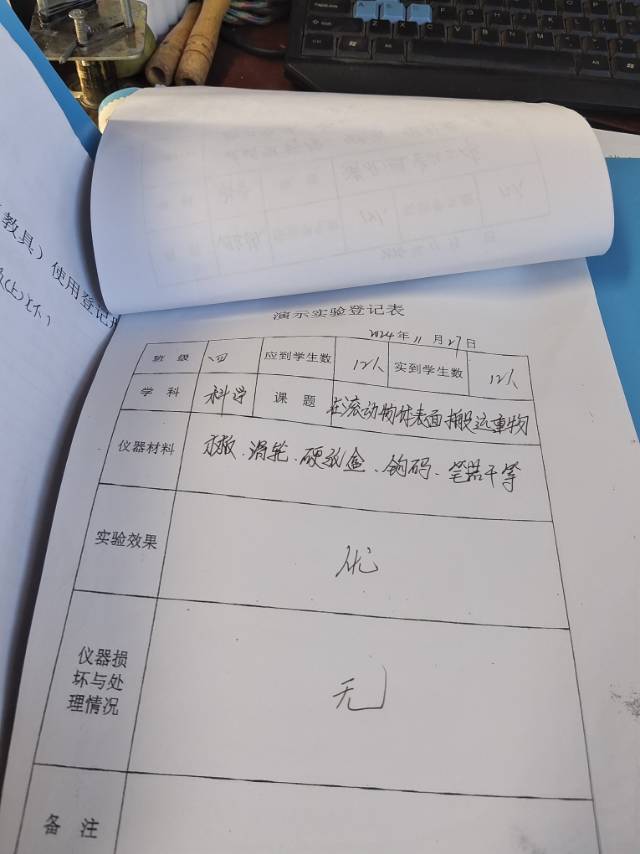 (教具)使用登记
演示实验登记表
2024年11月27日
班级 四 应到学生数 12人 实到学生数 12人
学科 科学 课题 在流动物体表面搬运重物
仪器材料 木板、滑轮、硬纸盒、钩码、笔若干等
实验效果 优
仪器损坏与处理情况 无
备注